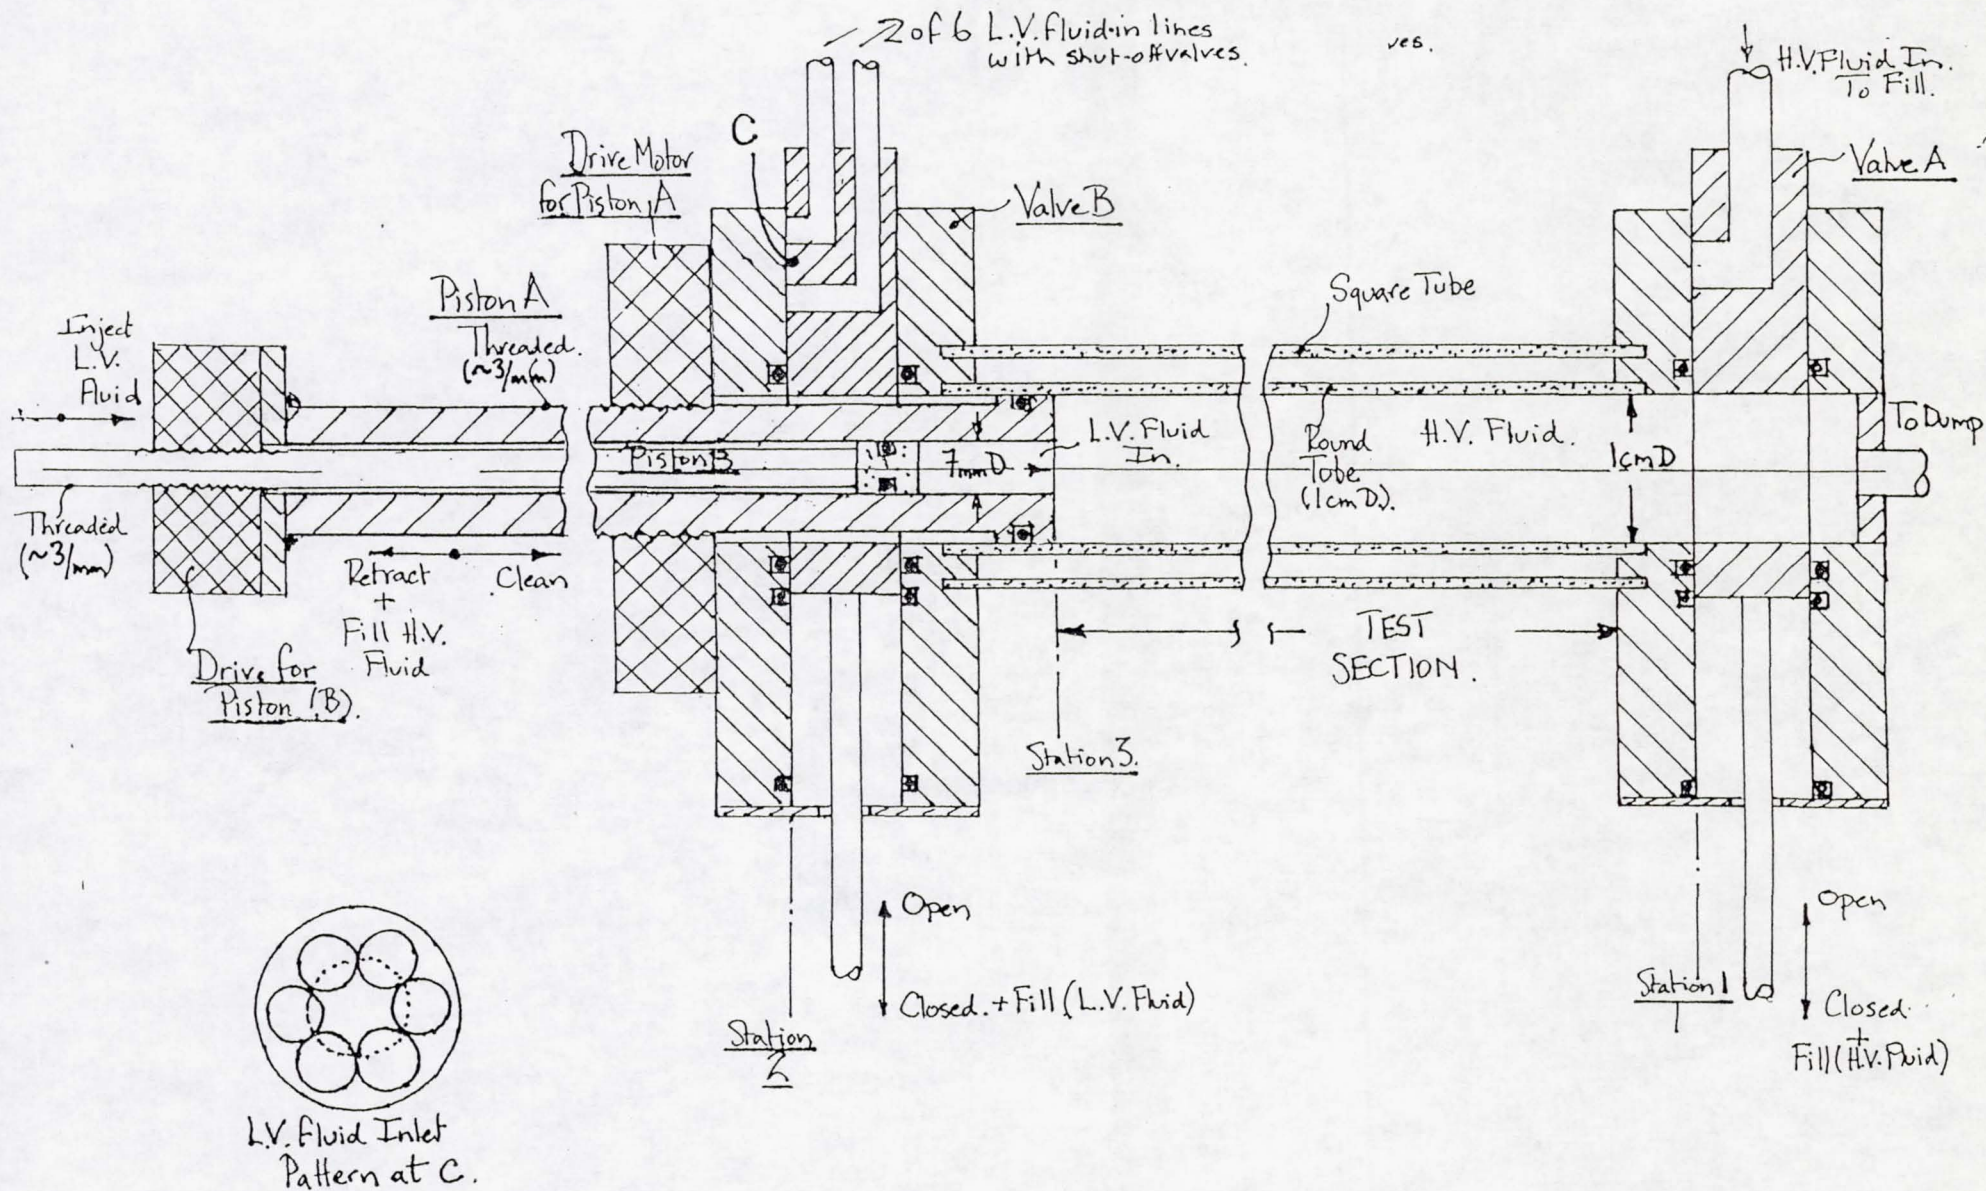 2 of 6 L.V. fluid-in lines
with shut-off valves.
ves.
H.V. Fluid In.
To Fill.
C
Drive Motor
for Piston A
Valve B
Valve A
Square Tube
Piston A
Threaded.
(~3/mm)
Inject
L.V.
Fluid
Piston B
7mmD
L.V. Fluid
In.
Round
Tube
(1cmD).
H.V. Fluid.
1cmD
To Dump
Threaded
(~3/mm)
Retract
+
Fill H.V.
Fluid
Clean
Drive for
Piston (B).
TEST
SECTION.
Station 3.
Open
Closed. + Fill (L.V. Fluid)
Station
2
Station 1
Open
Closed.
+
Fill (H.V. Fluid)
L.V. Fluid Inlet
Pattern at C.